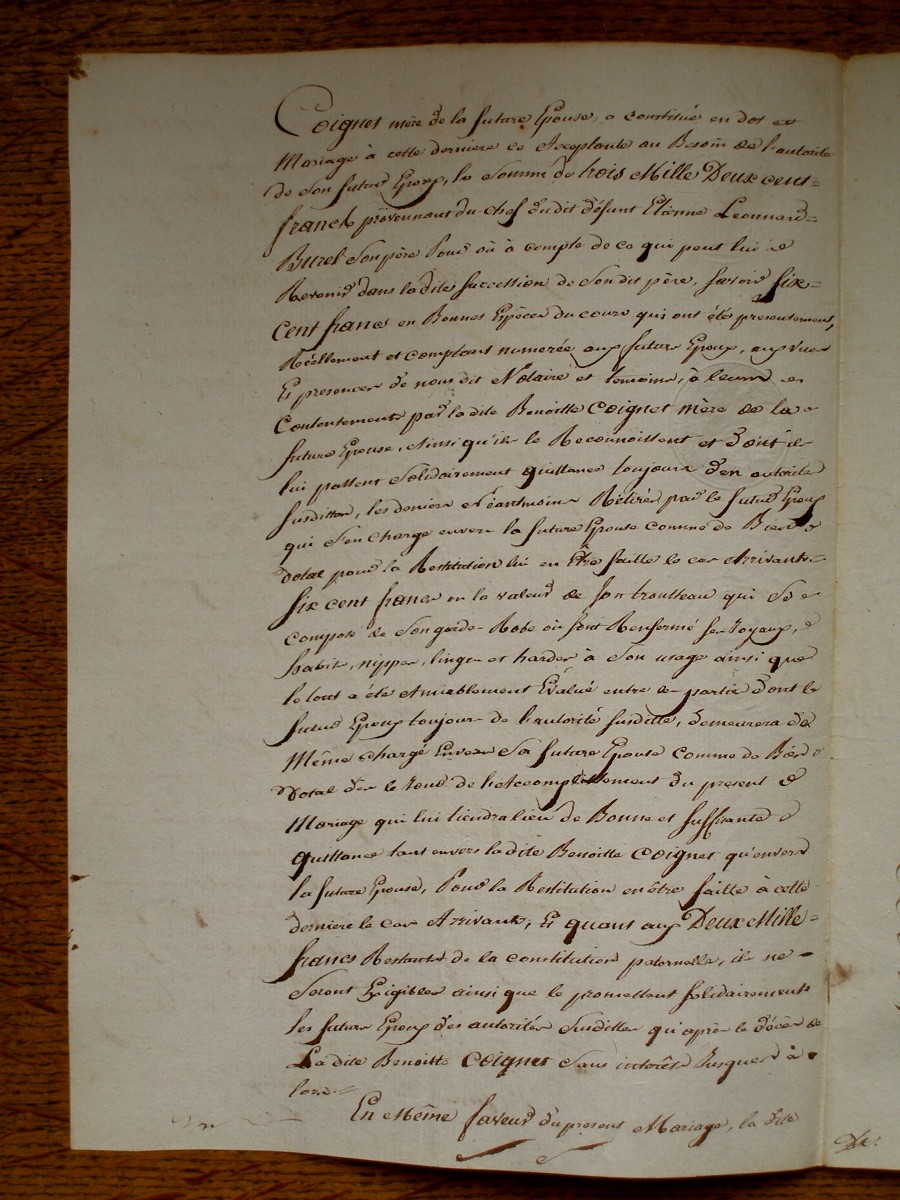 Coignet mère de la future Epouse, a constitué en dot et
Mariage à cette derniere ce Acceptante au Besoin de l'autorité
de Son futur Epoux, la Somme de trois Mille Deux cent=
franck provennant du chef dudit défunt Etienne Leonnard=
Burel Son père Pour où à compte de ce qui peut lui
Revenir dans la dite Succession de Son dit père, Savoir Six=
Cent francs en Bonnes Espèces du cours qui ont étés presentement,
Réellement et comptant numerée aux futurs Epoux, aux vues
Et presences de nous dit Notaire et temoins, à leurs
Contentements par la dite Benoitte Coignet mère de la
future Epouse, Ainsi qu'ils le Reconnoissent et dont ils
lui passent Solidairement quittance toujours d'en autorité
Susdittes, les deniers Néantmoins Rétirés par le futur Epoux
qui S'en Charge envers la future Epouse comme de Biens
Dotal pour la Restitution lui en Etre faitte le cas Arrivant=
Six cent francs en la valeur de Son trousseau qui Se
Compose de Son garde-Robe où Sont Renfermé Ses Joyaux,
habits, nippes, linges et hardes à Son usage ainsi que
le tout a été Amiablement Evalué entre les partie dont le
futur Epoux toujours de l'autorité Susditte, demeurera de
Même Chargé Envers Sa future Epouse comme de Biens
Dotal dès le Jour de l'Accomplissement du present
Mariage qui lui tiendra lieu de Bonne et Suffisante
quittance tant envers la dite Benoitte Coignet qu'envers
la future Epouse, Pour la Restitution en être faitte à cette
derniere le cas Arrivant, Et quant aux Deux Mille=
francs Restants de la constitution paternelle, ils ne=
Seront Exigibles ainsi que le promettent Solidairement
les futurs Epoux des autorités Susdittes qu'après le décès de
La dite Benoitte Coignet Sans intérêts Jusques à
lors.
En Même faveur du present Mariage, la dite